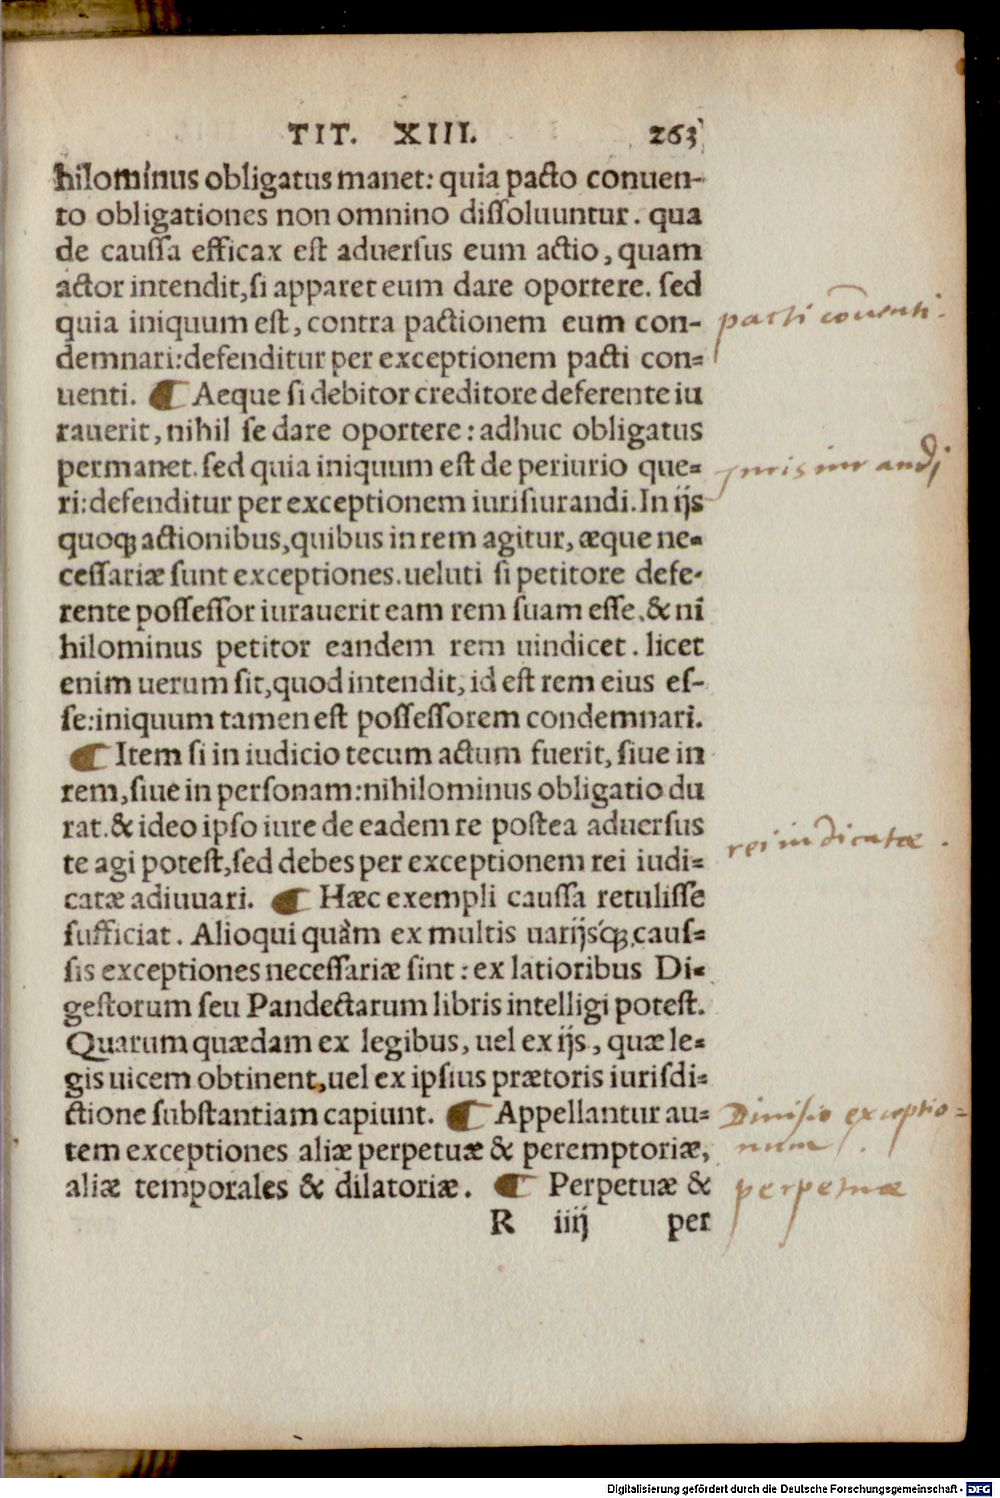 TIT. XIII. 263
hilominus obligatus manet: quia pacto conuen-
to obligationes non omnino dissoluuntur. qua
de caussa efficax est aduersus eum actio, quam
actor intendit, si apparet eum dare oportere. sed
quia iniquum est, contra pactionem eum con-
demnari: defenditur per exceptionem pacti con-
uenti. ¶ Aeque si debitor creditore deferente iu
rauerit, nihil se dare oportere: adhuc obligatus
permanet. sed quia iniquum est de periurio que-
ri: defenditur per exceptionem iurisiurandi. In ijs
quoq; actionibus, quibus in rem agitur, æque ne-
cessariæ sunt exceptiones. ueluti si petitore defe-
rente possessor iurauerit eam rem suam esse, & ni
hilominus petitor eandem rem uindicet. licet
enim uerum sit, quod intendit, id est rem eius es-
se: iniquum tamen est possessorem condemnari.
¶ Item si in iudicio tecum actum fuerit, siue in
rem, siue in personam: nihilominus obligatio du
rat. & ideo ipso iure de eadem re postea aduersus
te agi potest, sed debes per exceptionem rei iudi-
catæ adiuuari. ¶ Hæc exempli caussa retulisse
sufficiat. Alioqui quàm ex multis uarijsq́; caus-
sis exceptiones necessariæ sint: ex latioribus Di-
gestorum seu Pandectarum libris intelligi potest.
Quarum quædam ex legibus, uel ex ijs, quæ le-
gis uicem obtinent, uel ex ipsius prætoris iurisdi-
ctione substantiam capiunt. ¶ Appellantur au-
tem exceptiones aliæ perpetuæ & peremptoriæ,
aliæ temporales & dilatoriæ. ¶ Perpetuæ &
R iiij per
pacti cōuenti.
jurisiurandj
rei iudicatæ.
Diuisio exceptio=
num.
perpetuæ
Digitalisierung gefördert durch die Deutsche Forschungsgemeinschaft - DFG